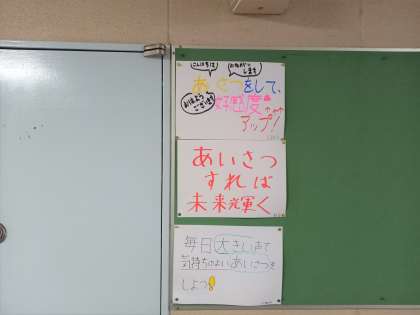 こんにちは
おねがいします
あいさつをして、
おはようございます
好感度
アップ!
あいさつ
すれば
未来輝く
毎日大きい声で
気持ちのよいあいさつを
しよう!